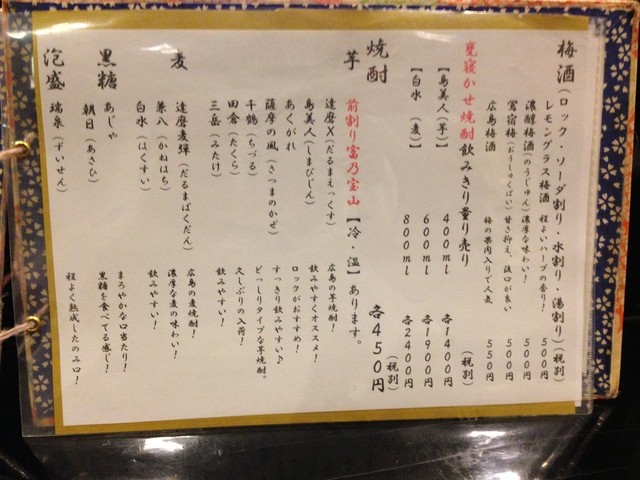 梅酒(ロック・ソーダ割り・水割り・湯割り)(税別)
レモングラス梅酒 程よいハーブの香り! 500円
濃醇梅酒(のうじゅん)濃厚な味わい! 500円
鶯宿梅(おうしゅくばい)甘さ抑え、後口が良い 500円
広島梅酒 梅の果肉入りで人気 550円
甕寝かせ焼酎飲みきり量り売り (税別)
【島美人(芋)】 400ml 各1400円
【白水 (麦)】 600ml 各1900円
800ml 各2400円
焼酎 各450円(税別)
芋 前割り富乃宝山【冷・温】あります。
達磨X(だるまえっくす) 広島の芋焼酎!
島美人(しまびじん) 飲みやすくオススメ!
あくがれ ロックがおすすめ!
薩摩の風(さつまのかぜ) すっきり飲みやすい♪
千鶴(ちづる) どっしりタイプな芋焼酎。
田倉(たくら) 久しぶりの入荷!
三岳(みたけ) 飲みやすい!
麦 達磨麦弾(だるまばくだん) 広島の麦焼酎!
兼八(かねはち) 濃厚な麦の味わい!
白水(はくすい) 飲みやすい!
黒糖 あじゃ まろやかな口当たり!
朝日(あさひ) 黒糖を食べてる感じ!
泡盛 瑞泉(ずいせん) 程よく熟成したのみ口!